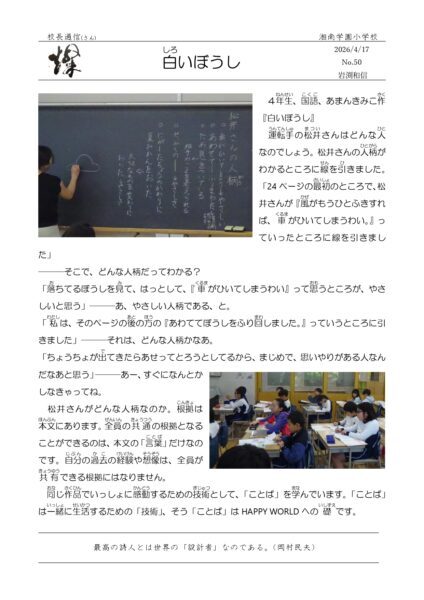 校長通信(さん)
湘南学園小学校
2026/4/17
No.50
岩渕和信
白いぼうし
4年生、国語、あまんきみこ作
『白いぼうし』
運転手の松井さんはどんな人
なのでしょう。松井さんの人柄が
わかるところに線を引きました。
「24 ページの最初のところで、松
井さんが『風がもうひとふきすれ
ば、車がひいてしまうわい。』っ
ていったところに線を引きまし
た」
―――そこで、どんな人柄だってわかる？
「落ちてるぼうしを見て、はっとして、『車がひいてしまうわい』って思うところが、やさ
しいと思う」―――あ、やさしい人柄である、と。
「私は、そのページの後の方の『あわててぼうしをふり回しました。』っていうところに引
きました」―――それは、どんな人柄かなあ。
「ちょうちょが出てきたらあせってとろうとしてるから、まじめで、思いやりがある人なん
だなあと思う」―――あー、すぐになんとか
しなきゃってね。
松井さんがどんな人柄なのか。根拠は
本文にあります。全員の共通の根拠となる
ことができるのは、本文の「言葉」だけなの
です。自分の過去の経験や想像は、全員が
共有できる根拠にはなりません。
同じ作品でいっしょに感動するための技術として、「ことば」を学んでいます。「ことば」
は一緒に生活するための「技術」、そう「ことば」は HAPPY WORLD への礎です。
最高の詩人とは世界の「設計者」なのである。（岡村民夫）
松井さんの人柄